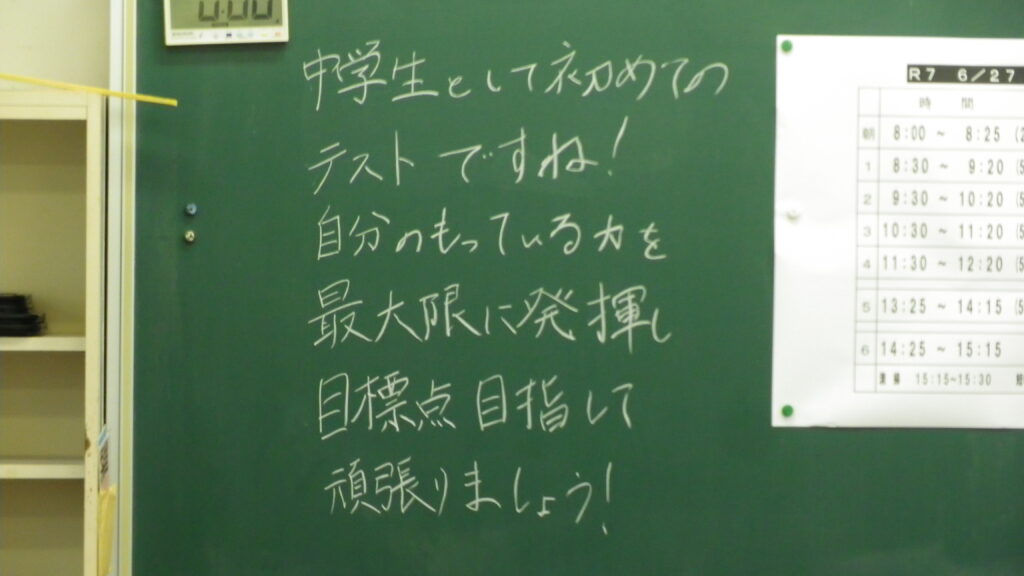 中学生として初めての
テストですね!
自分のもっている力を
最大限に発揮し
目標点目指して
頑張りましょう!
R7 6/27
時間
朝 8:00 ~ 8:25
1 8:30 ~ 9:20
2 9:30 ~ 10:20
3 10:30 ~ 11:20
4 11:30 ~ 12:20
5 13:25 ~ 14:15
6 14:25 ~ 15:15
清掃 15:15~15:30